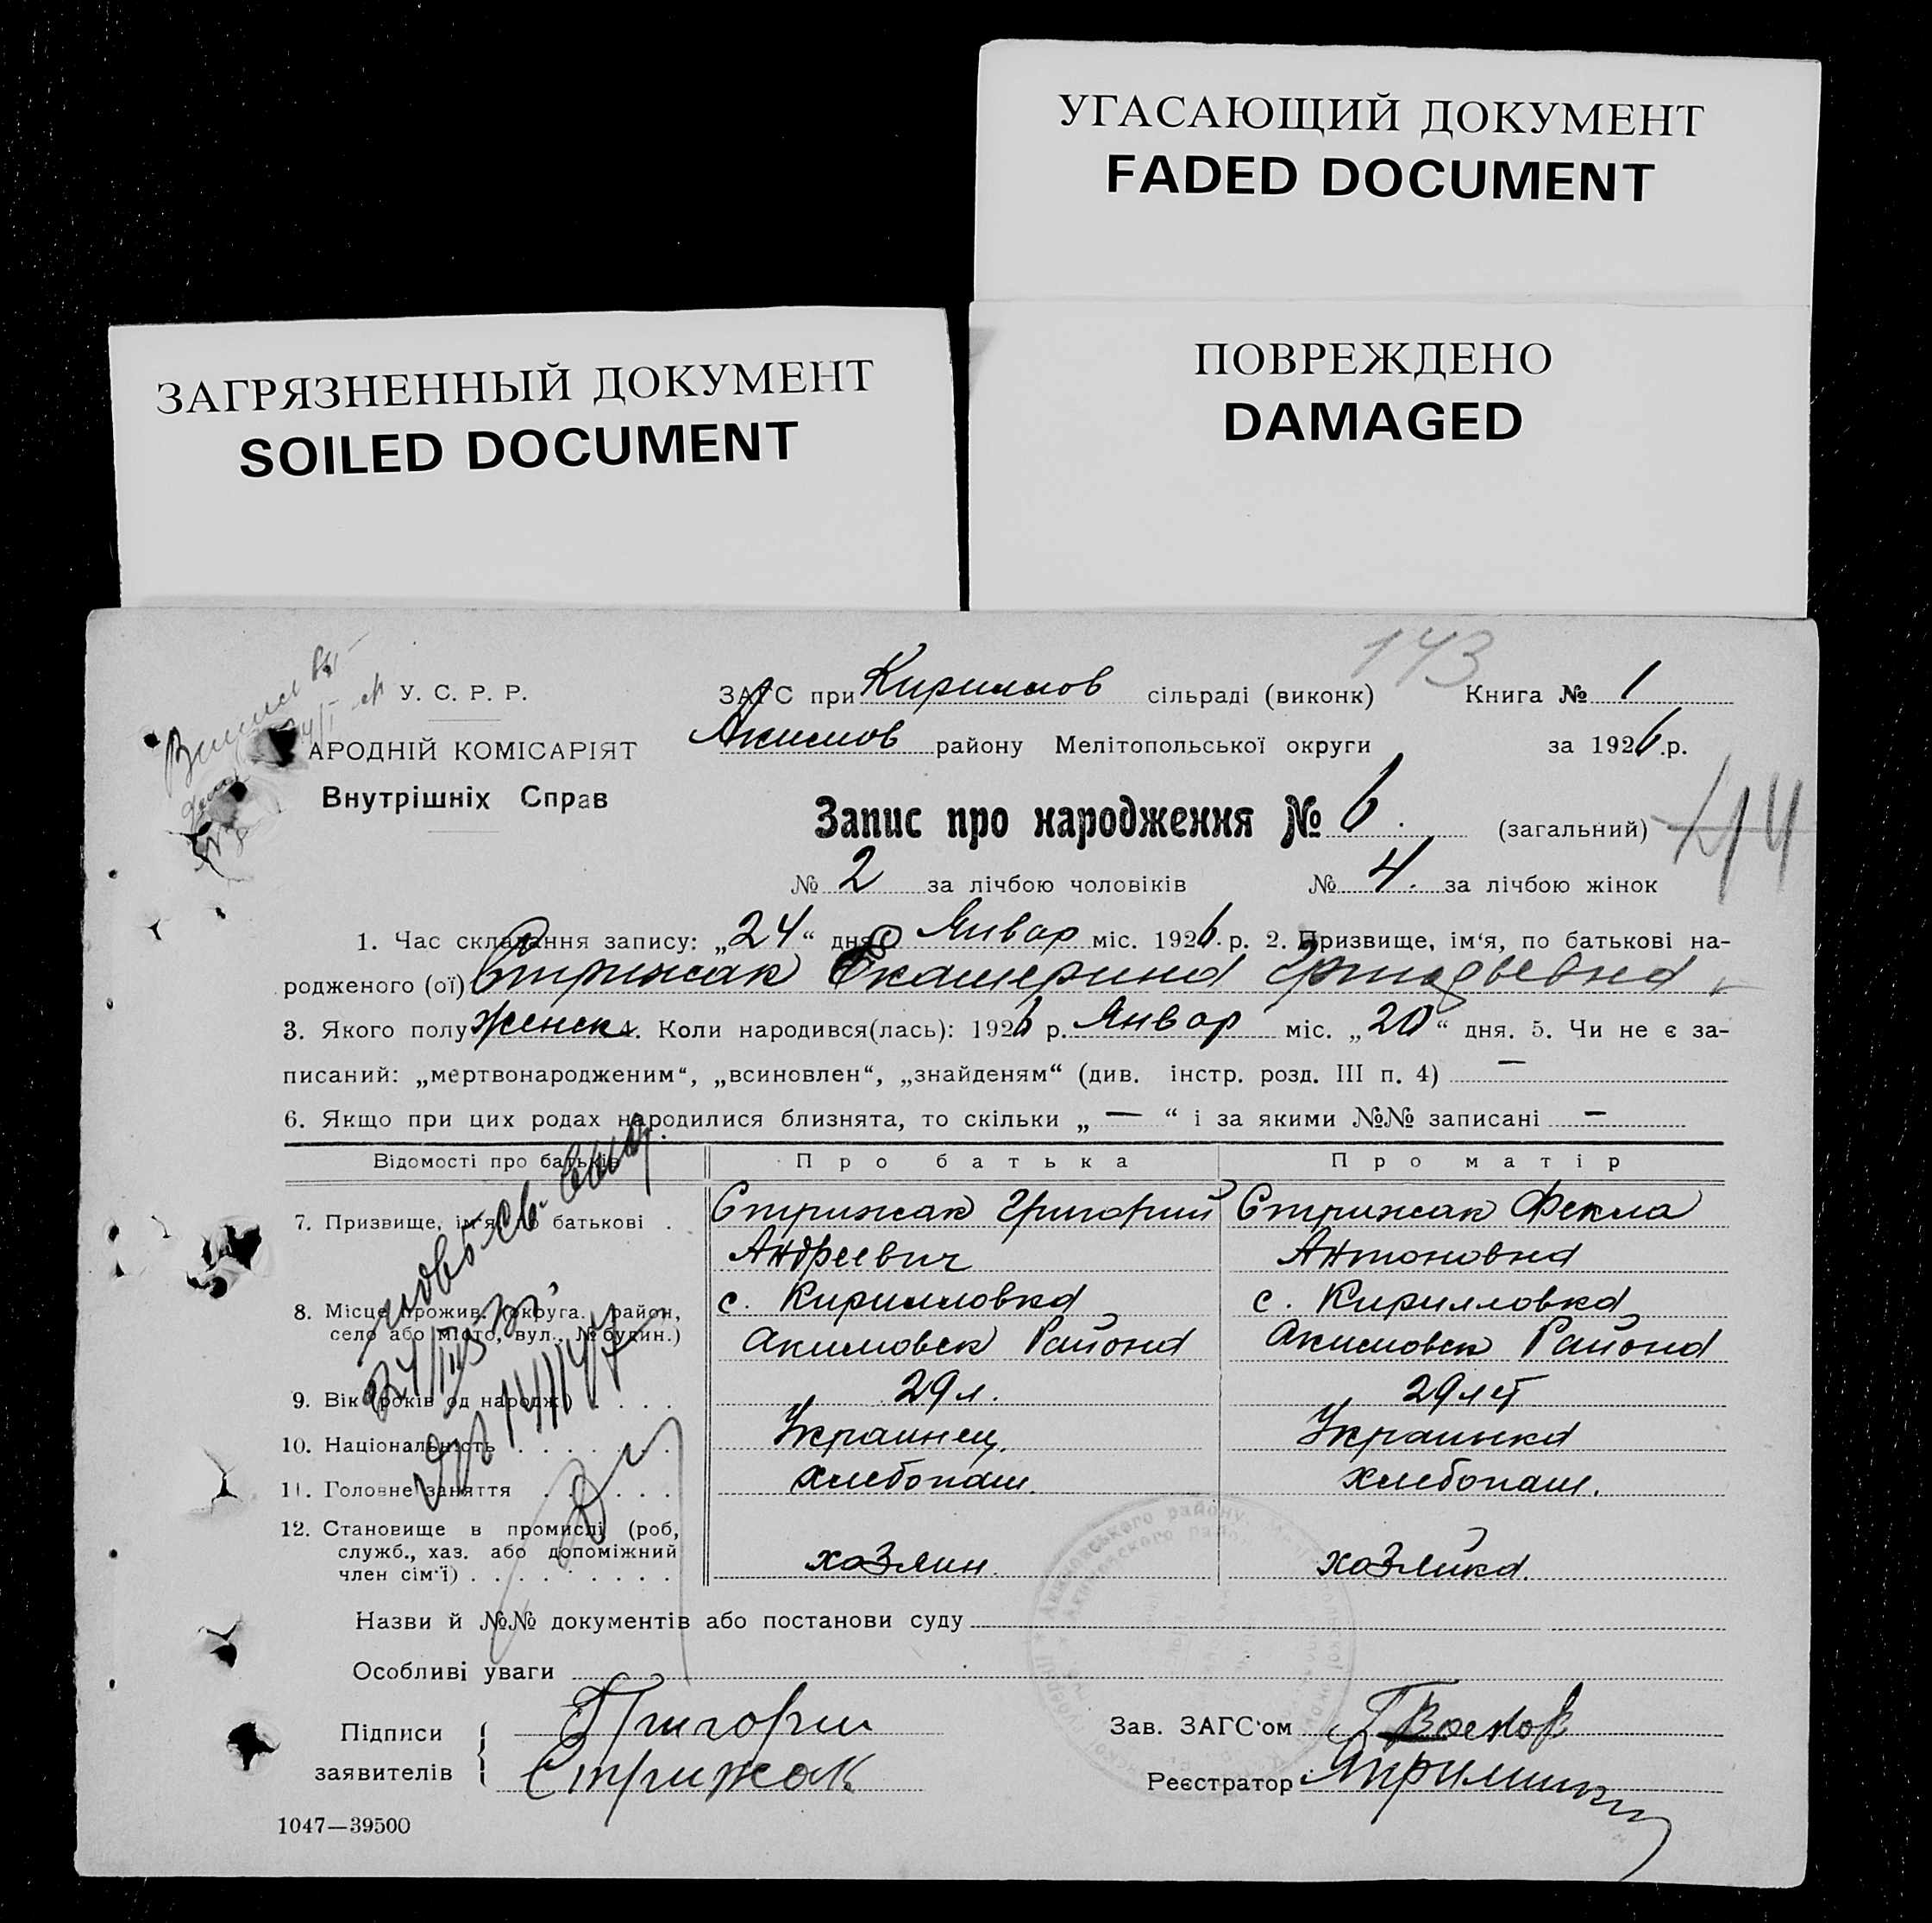 УГАСАЮЩИЙ ДОКУМЕНТ
FADED DOCUMENT
ЗАГРЯЗНЕННЫЙ ДОКУМЕНТ
SOILED DOCUMENT
ПОВРЕЖДЕНО
DAMAGED
143
У. С. Р. Р.
АРОДНІЙ КОМІСАРІЯТ
Внутрішніх Справ
ЗАГС при Кириллов сільраді (виконк) Книга № 1
Акимов району Мелітопольської округи за 1926 р.
Запис про народження № 6. (загальний) 44
№ 2 за лічбою чоловіків № 4. за лічбою жінок
1. Час складання запису: „24“ дня Январ міс. 1926. р. 2. Призвище, ім‘я, по батькові на-
родженого (ої) Стрижак Екатерина
3. Якого полу Женск 4. Коли народився(лась): 1926 р. Январ міс. „20“ дня. 5. Чи не є за-
писаний: „мертвонародженим“, „всиновлен“, „знайденям“ (див. інстр. розд. III п. 4) —
6. Якщо при цих родах народилися близнята, то скільки „ — “ і за якими №№ записані —
Відомості про батьків Про батька Про матір
7. Призвище, ім‘я, по батькові . Стрижак Григорий Стрижак Фекла
Андреевич Антоновна
8. Місце прожив. (округа. район, с. Кирилловка с. Кирилловка
село або місто, вул., № будин.) Акимовск Района Акимовск Района
9. Вік (років од народж.) . . . . 29 л. 29 лет
10. Національність . . . . . . Украинец. Украинка
11. Головне заняття . . . . . . хлебопаш. хлебопаш.
12. Становище в промислі (роб,
служб., хаз. або допоміжний
член сім‘ї) . . . . . . . . . хозяин. хозяйка.
Назви й №№ документів або постанови суду
Особливі уваги
Підписи Григории Зав. ЗАГС‘ом
заявителів Стрижак Реєстратор
1047—39500